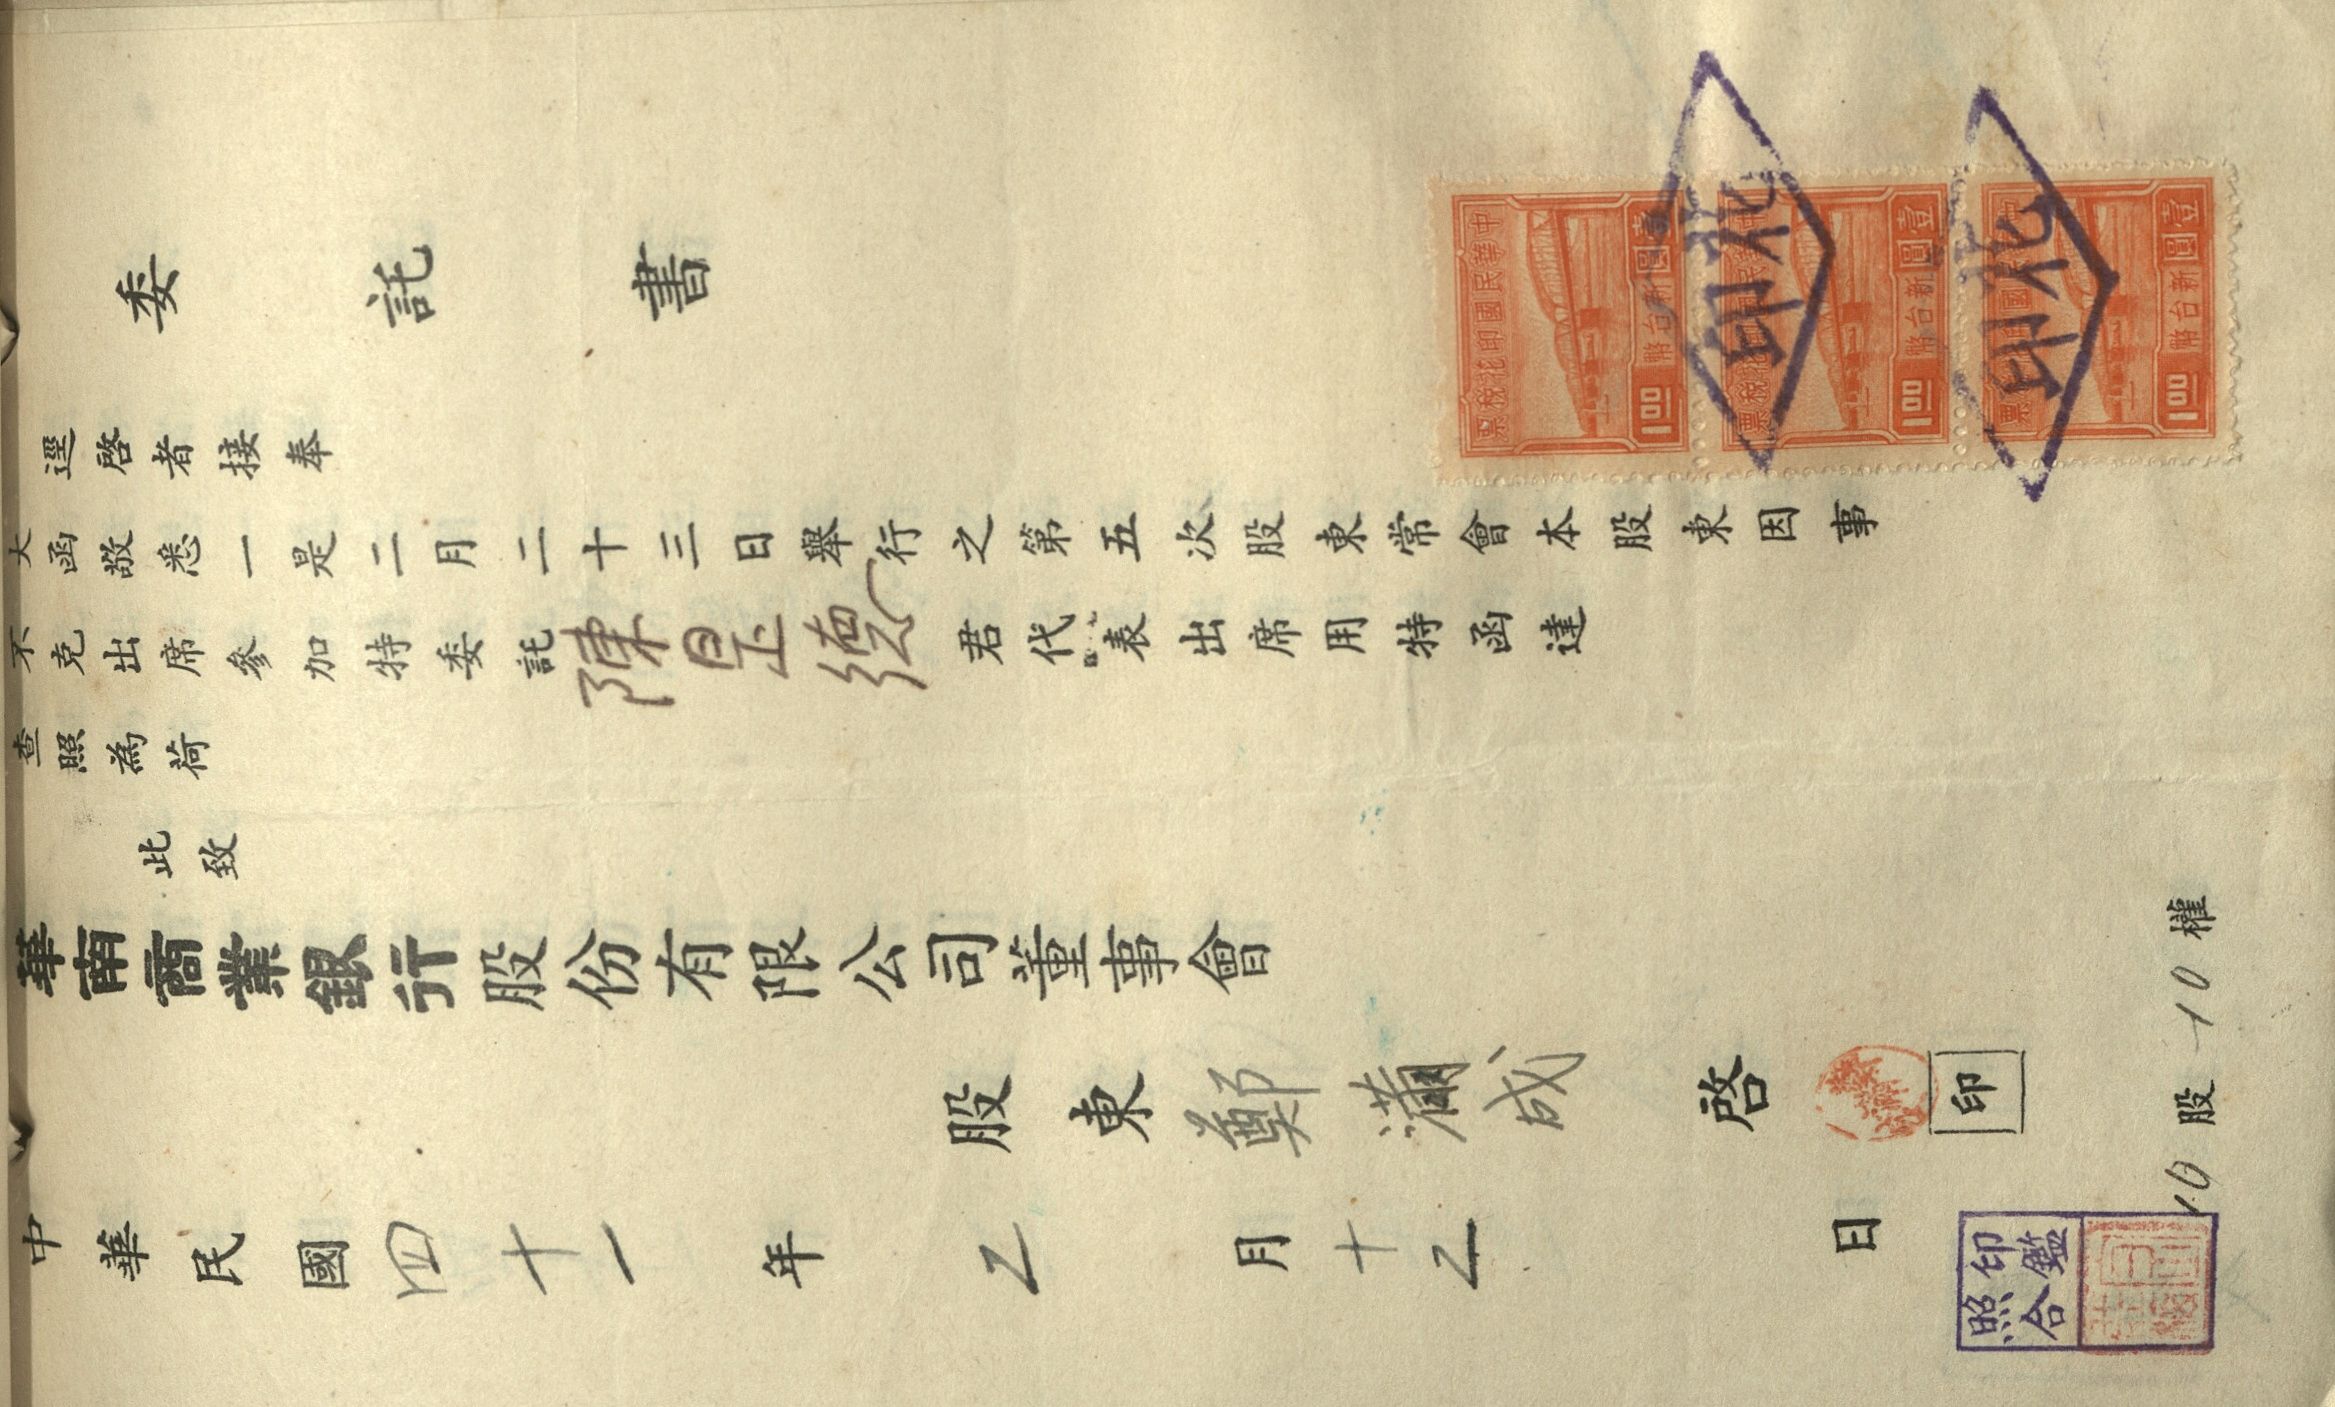 委託書
逕啓者接奉
大函敬悉一是二月二十三日舉行之第五次股東常會本股東因事
不克出席參加特委託陳昱德君代表出席用特函達
查照為荷
此致
華南商業銀行股份有限公司董事會
股東鄭滿成啓 印
中華民國四十一年2月十2日
10股10權
印鑑照合
中華民國印花稅票
壹圓 新台幣 1.00
中華民國印花稅票
壹圓 新台幣 1.00
中華民國印花稅票
壹圓 新台幣 1.00
北印
北印